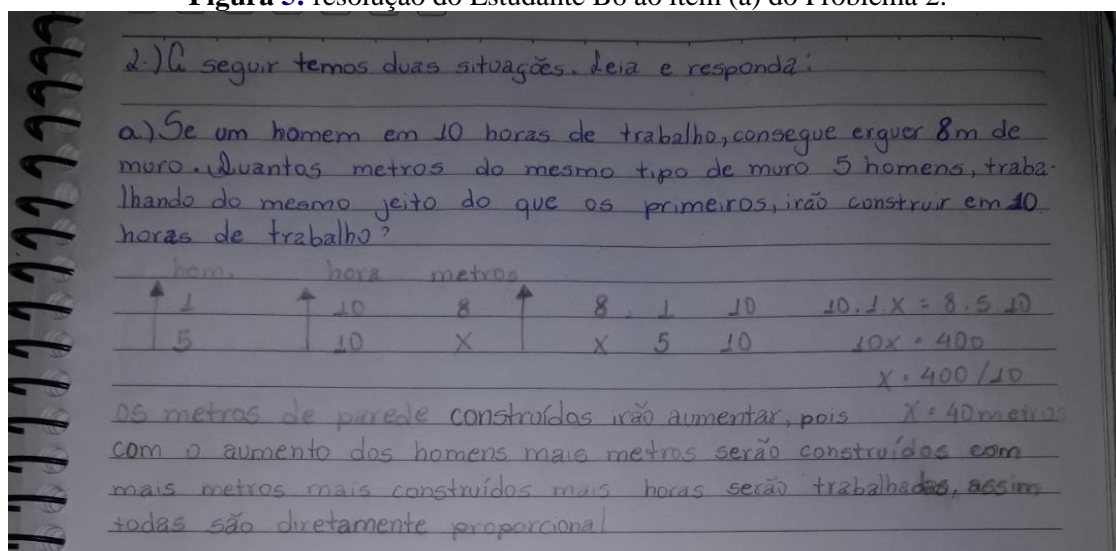 Figura 5: resolução do Estudante B6 ao item (a) do Problema 2.
2.) A seguir temos duas situações. Leia e responda:
a) Se um homem em 10 horas de trabalho, consegue erguer 8m de
muro. Quantos metros do mesmo tipo de muro 5 homens, traba-
lhando do mesmo jeito do que os primeiros, irão construir em 10
horas de trabalho?
hom. hora metros
1 10 8 8 . 1 10 10.1.X = 8.5.10
5 10 X X 5 10 10X = 400
X = 400/10
Os metros de parede construídos irão aumentar, pois X = 40 metros
com o aumento dos homens mais metros serão construídos com
mais metros mais construídos mais horas serão trabalhadas, assim
todas são diretamente proporcional